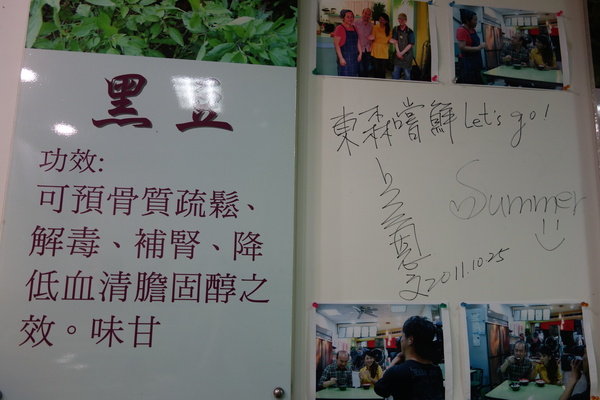 黑豆
功效:
可預骨質疏鬆、
解毒、補腎、降
低血清膽固醇之
效。味甘
東森嚐鮮 Let's go!
Summer
2011.10.25